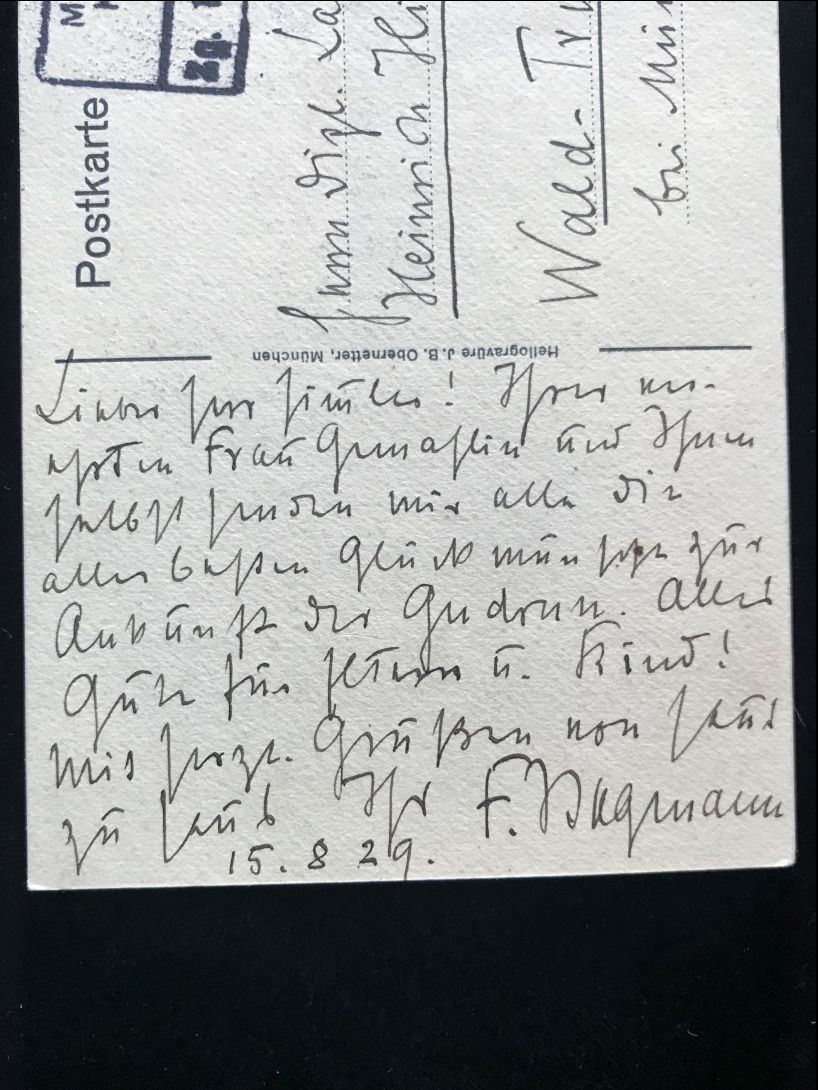 Postkarte
Herrn Dipl. La
Heinrich Hi
Wald-Tru
bei Mün
Heliogravüre J. B. Obernetter, München
Lieber Herr Himmler! Ihrer ver-
ehrten Frau Gemahlin und Ihnen
selbst senden wir alle die
allerbesten Glückwünsche zur
Ankunft der Gudrun. Alles
Gute für Eltern u. Kind!
Mit herzl. Grüßen von Haus
zu Haus Ihr F.
15. 8 29.